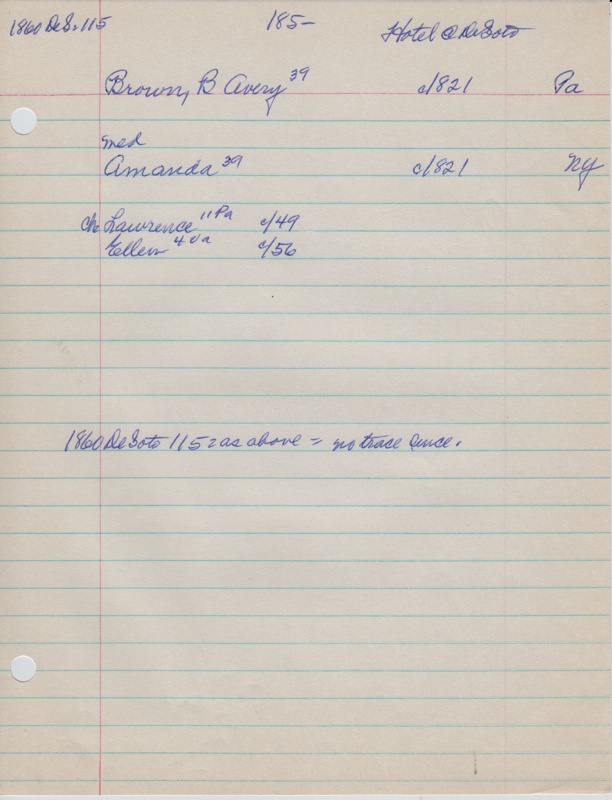 1860 DeS. 115 185- Hotel @ DeSoto
Brown, B Avery 39 c/821 Pa
med
Amanda 39 c/821 NY
ch Lawrence 11 Pa c/49
Ellen 4 Va c/56
1860 DeSoto 115 = as above = no trace since.